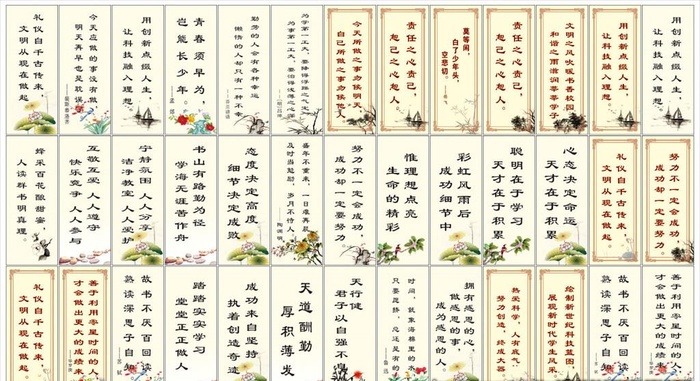 礼仪自千古传来，
文明从现在做起。
今天应做的事没有做，
明天再早也是耽误。
用创新点缀人生，
让科技融入理想。
青春须早为，
岂能长少年。
——孟郊
勤劳的人会有各种幸运，
懒惰的人却只有一种不幸。
今天所做之事勿候明天，
自己所做之事勿候他人。
责任之心责己，
恕己之心恕人。
莫等闲，
白了少年头，
空悲切。
——岳飞
责任之心责己，
恕己之心恕人。
文明之风吹暖书香校园，
和谐之雨滋润莘莘学子。
用创新点缀人生，
让科技融入理想。
用创新点缀人生，
让科技融入理想。
蜂采百花酿甜蜜，
人读群书明真理。
互敬互爱，人人遵守
快乐竞争，人人参与
宁静氛围，人人分享
洁净教室，人人爱护
书山有路勤为径
学海无涯苦作舟
态度决定高度
细节决定成败
盛年不重来，一日难再晨。
及时当勉励，岁月不待人。
——陶渊明
努力不一定会成功，
成功却一定要努力。
惟理想点亮
生命的精彩
彩虹风雨后
成功细节中
聪明在于学习
天才在于积累
心态决定命运
天才在于积累
礼仪自千古传来，
文明从现在做起。
努力不一定会成功，
成功却一定要努力。
礼仪自千古传来，
文明从现在做起。
善于利用零星时间的人，
才会做出更大的成绩来
故书不厌百回读
熟读深思子自知
——苏轼
踏踏实实学习
堂堂正正做人
成功来自坚持
执着创造奇迹
天道酬勤
厚积薄发
天行健
君子以自强不
时间，就象海绵里的水
只要愿挤，总还是有的
——鲁迅
拥有感恩的心
做感恩的事
成为感恩的人
热爱科学，人有底气
努力创造，终成大器
绘制新世纪科技蓝图
展现新时代学生风采
故书不厌百回读
熟读深思子自知
——苏轼
善于利用零星时间的人，
才会做出更大的成绩来